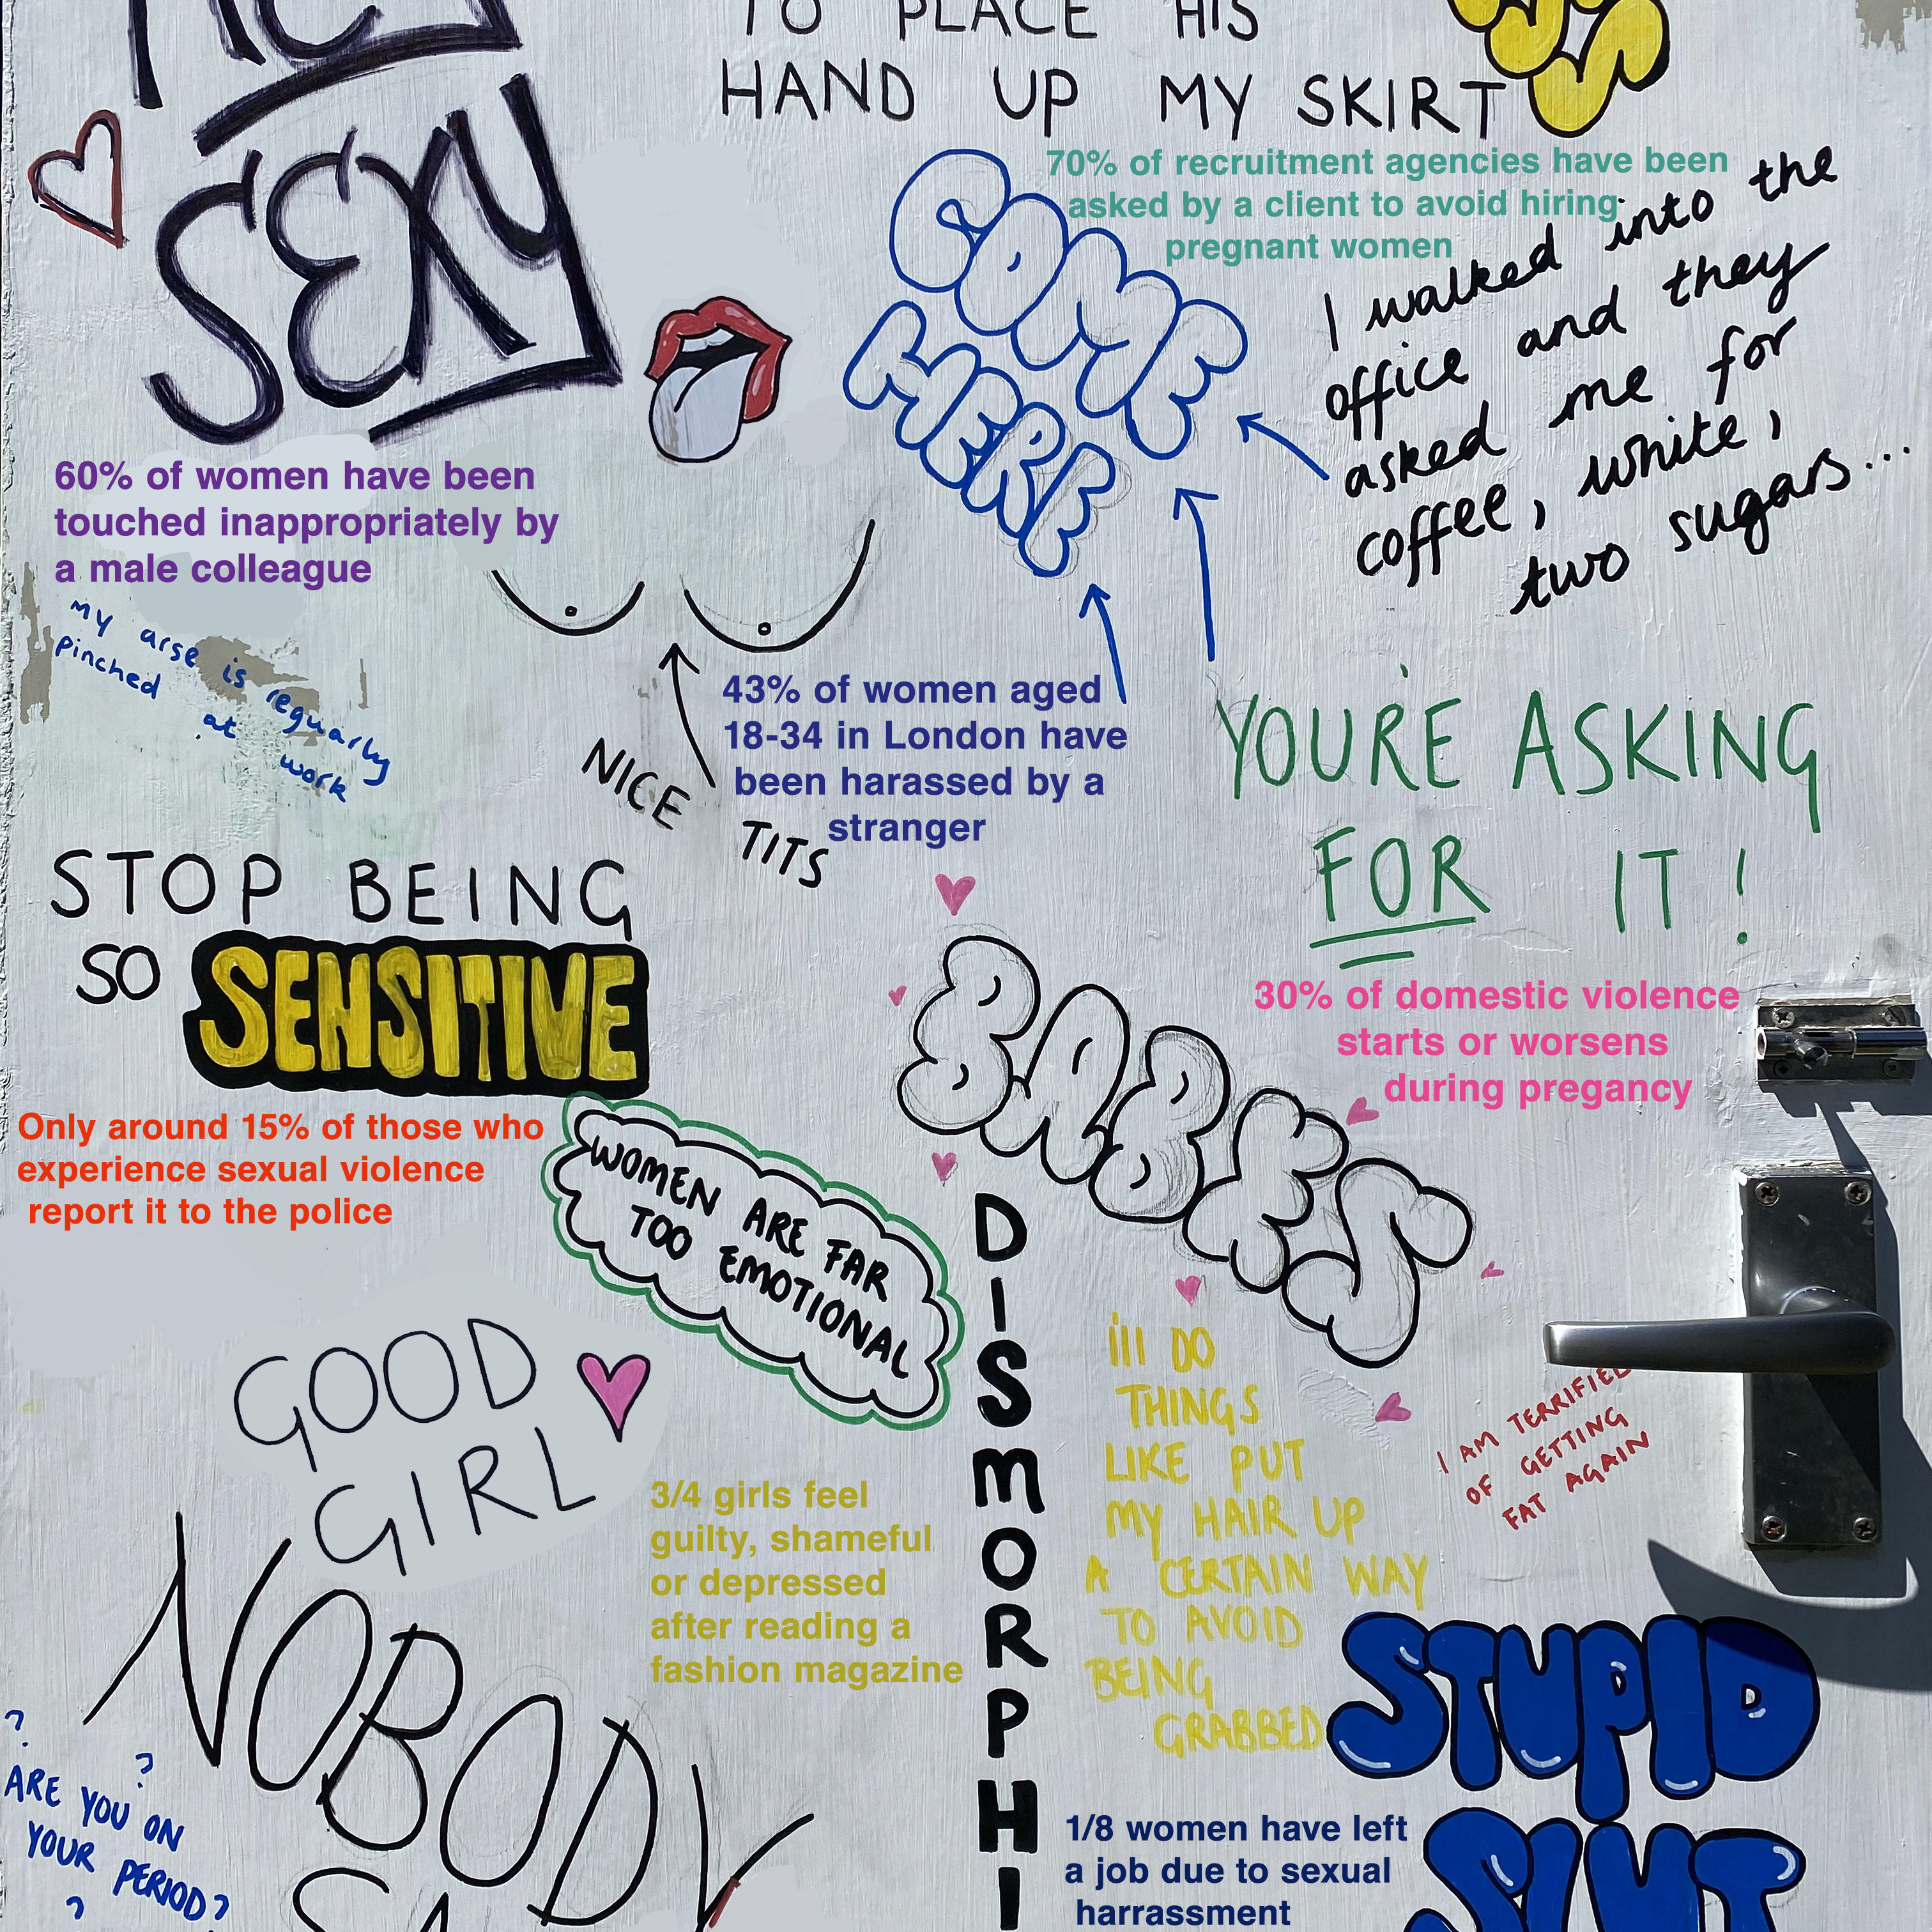 TO PLACE HIS
HAND UP MY SKIRT
SEXY
70% of recruitment agencies have been
asked by a client to avoid hiring
pregnant women
COME
HERE
I walked into the
office and they
asked me for
coffee, white,
two sugars...
60% of women have been
touched inappropriately by
a male colleague
my arse is reguarly
pinched at work
NICE TITS
43% of women aged
18-34 in London have
been harassed by a
stranger
YOU'RE ASKING
FOR IT!
STOP BEING
SO SENSITIVE
BABES
30% of domestic violence
starts or worsens
during pregancy
Only around 15% of those who
experience sexual violence
report it to the police
WOMEN ARE FAR
TOO EMOTIONAL
GOOD
GIRL
DISMORPHI
I'll DO
THINGS
LIKE PUT
MY HAIR UP
A CERTAIN WAY
TO AVOID
BEING
GRABBED
I AM TERRIFIED
OF GETTING
FAT AGAIN
3/4 girls feel
guilty, shameful
or depressed
after reading a
fashion magazine
NOBODY
STUPID
SLUT
? ?
ARE YOU ON
YOUR PERIOD?
?
1/8 women have left
a job due to sexual
harrassment